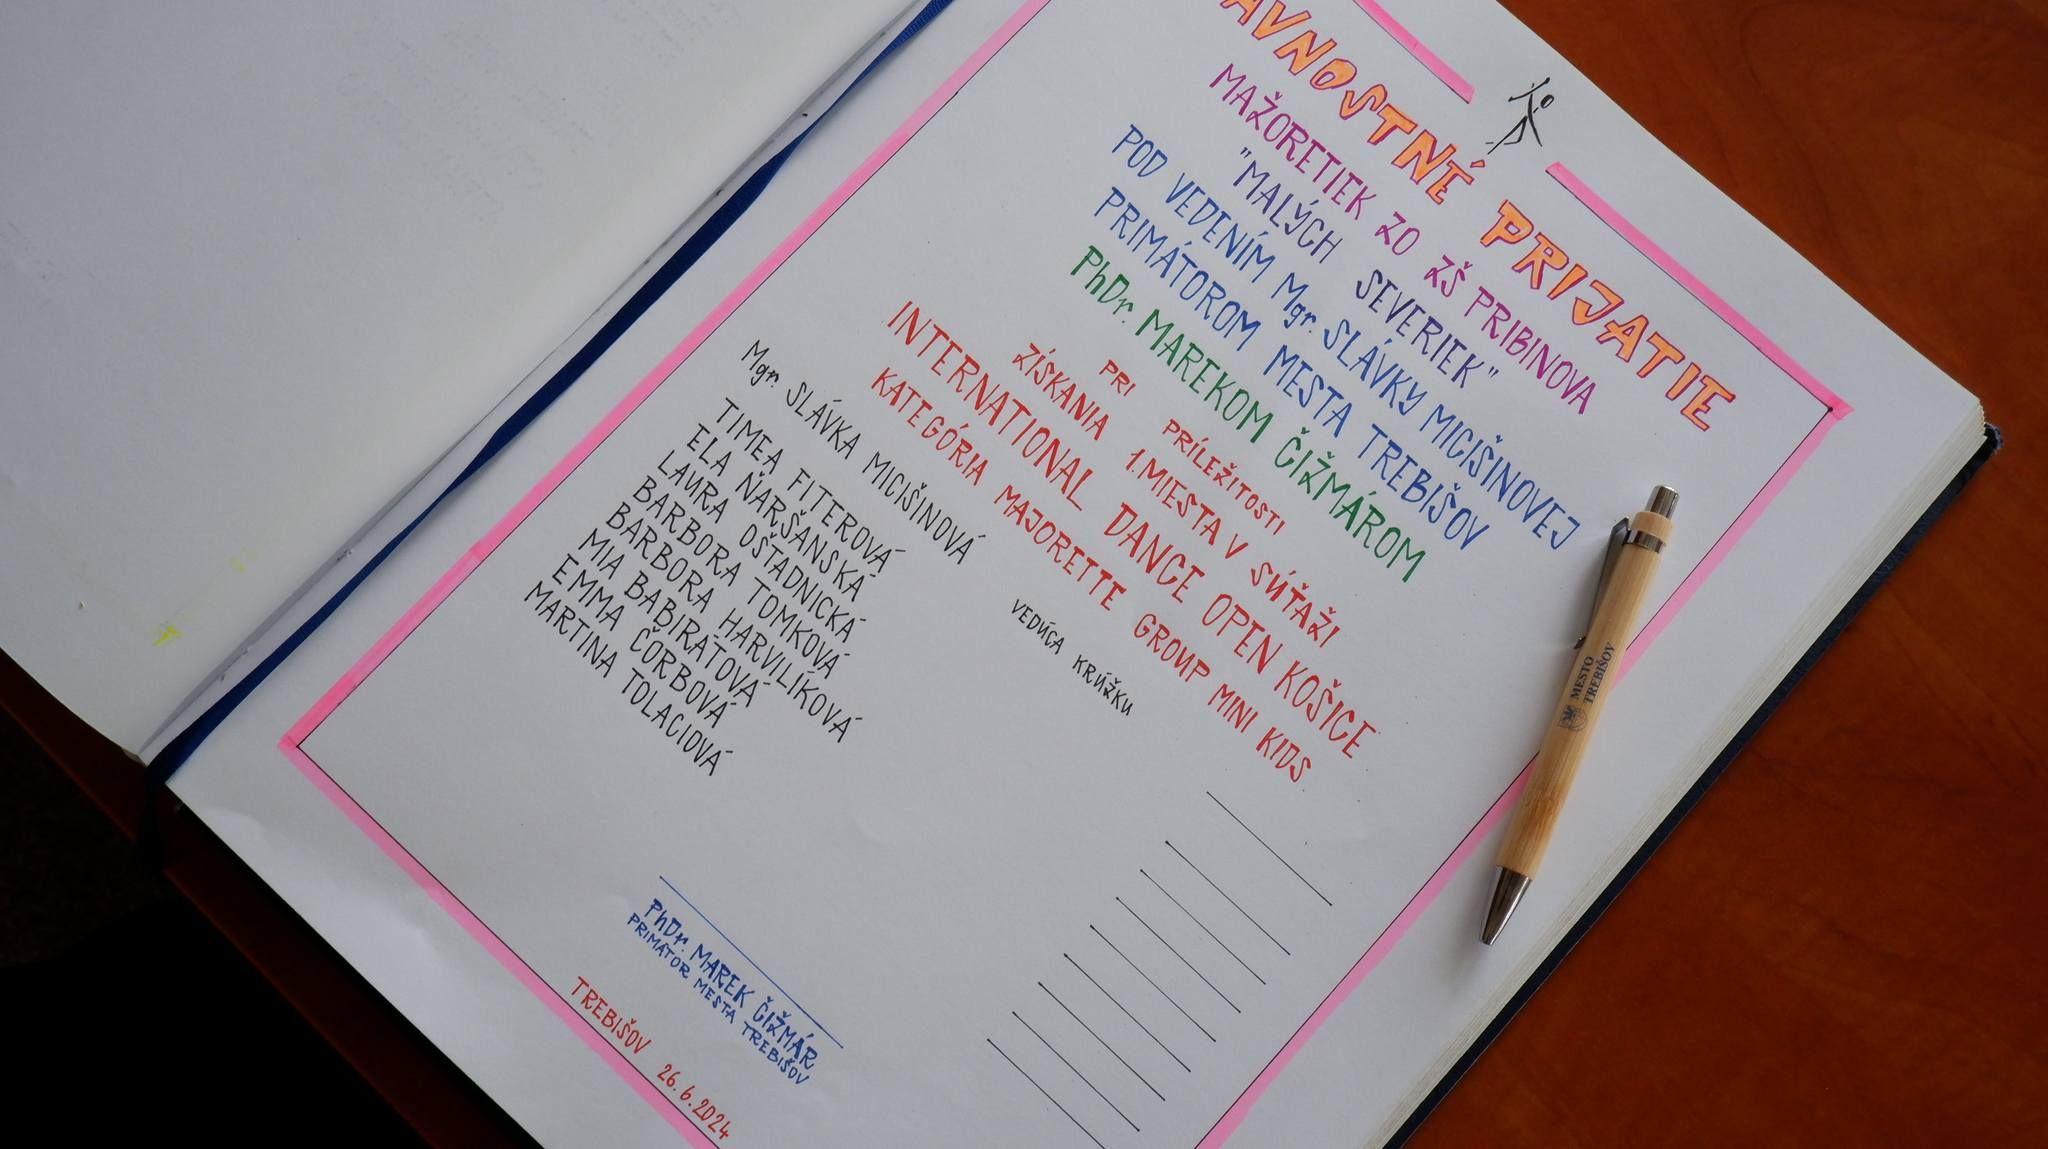 AVNOSTNÉ PRIJATIE
MAŽORETIEK ZO ZŠ PRIBINOVA
"MALÝCH SEVERIEK"
POD VEDENÍM Mgr. SLÁVKY MICIŠINOVEJ
PRIMÁTOROM MESTA TREBIŠOV
PhDr. MAREKOM ČIŽMÁROM
PRI PRÍLEŽITOSTI
ZÍSKANIA 1. MIESTA V SÚŤAŽI
INTERNATIONAL DANCE OPEN KOŠICE
KATEGÓRIA MAJORETTE GROUP MINI KIDS
Mgr. SLÁVKA MICIŠINOVÁ VEDÚCA KRÚŽKU
TIMEA FITEROVÁ
ELA ŇARŠANSKÁ
LAURA OŠŤADNICKÁ
BARBORA TOMKOVÁ
BARBORA HARVILÍKOVÁ
MIA BABIRATOVÁ
EMMA ČORBOVÁ
MARTINA TOLACIOVÁ
PhDr. MAREK ČIŽMÁR
PRIMÁTOR MESTA TREBIŠOV
TREBIŠOV 26.6.2024
MESTO
TREBIŠOV